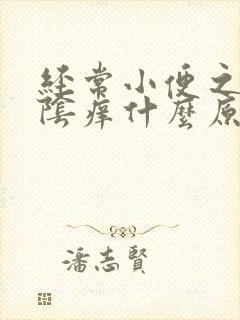 經常小便之
陰癢什麼原
潘志賢